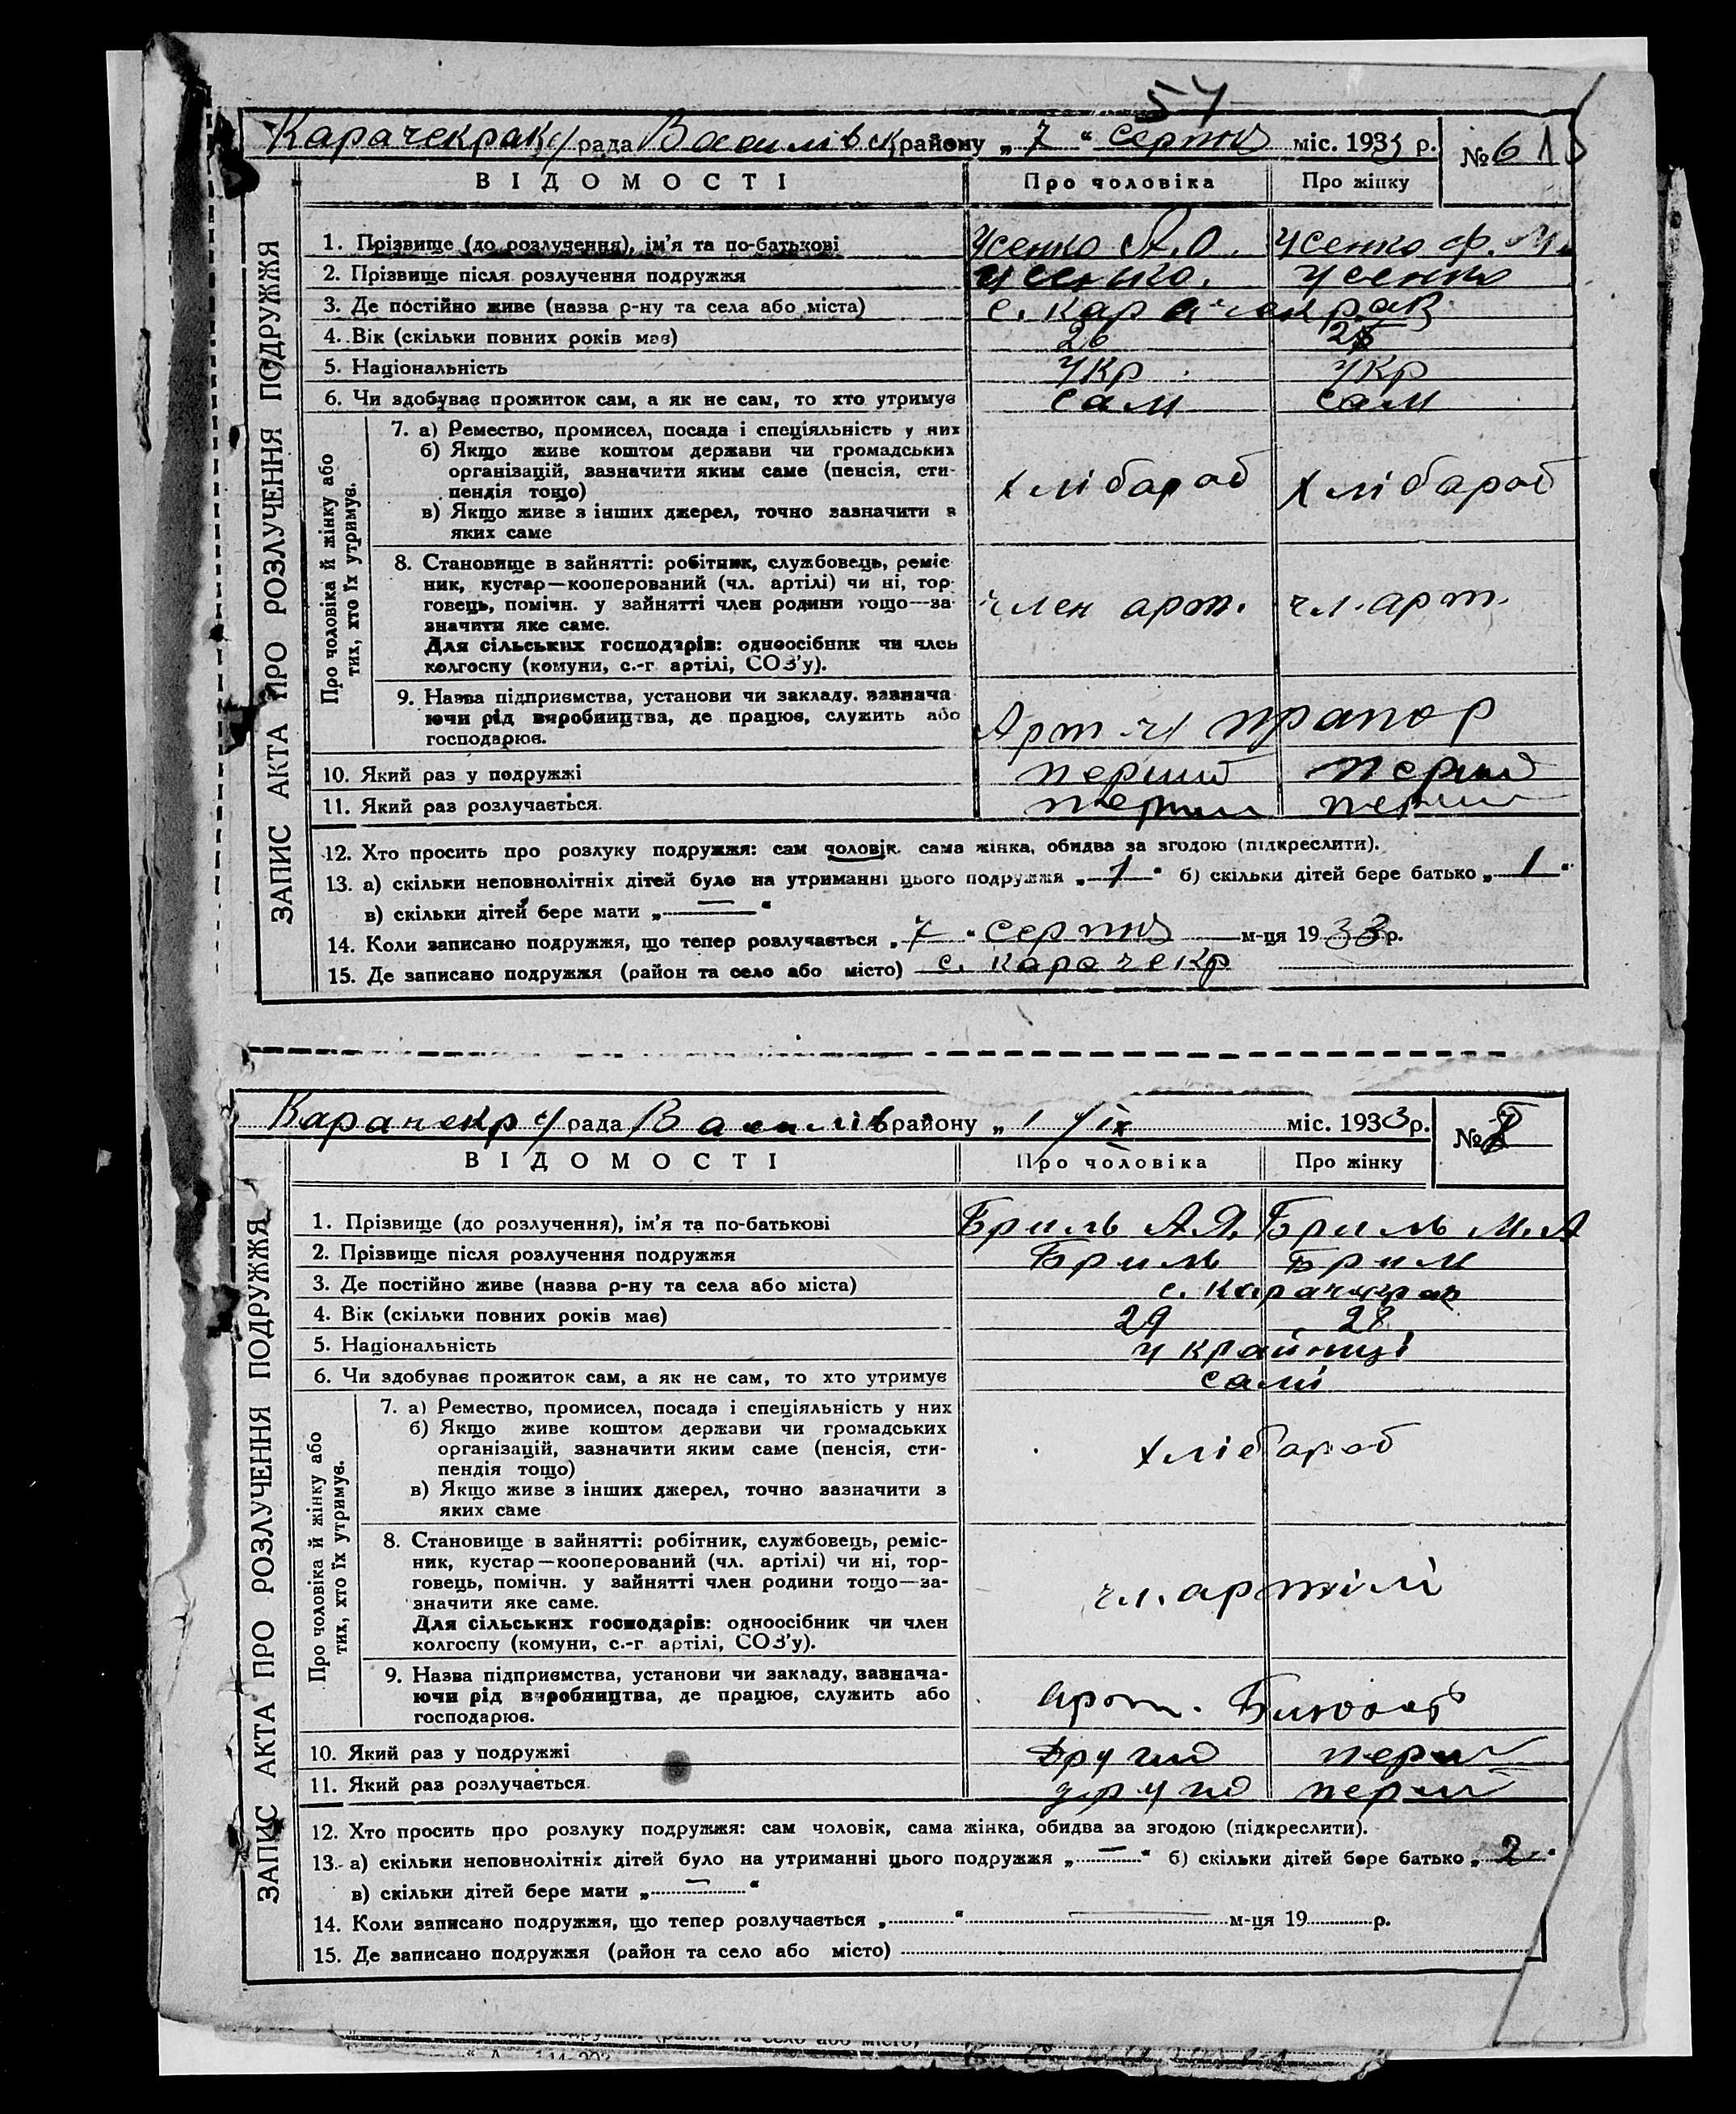 57
Карачекрак с/рада Василівськ району „ 7 “ серпня міс. 1933 р. № 6
ВІДОМОСТІ Про чоловіка Про жінку
ЗАПИС АКТА ПРО РОЗЛУЧЕННЯ ПОДРУЖЖЯ
1. Прізвище (до розлучення), ім’я та по-батькові Усенко А.О. Усенко Ф.М.
2. Прізвище після розлучення подружжя Усенко. Усенко
3. Де постійно живе (назва р-ну та села або міста) с. Карачекрак
4. Вік (скільки повних років має) 26
5. Національність Укр Укр
6. Чи здобуває прожиток сам, а як не сам, то хто утримує сам сам
Про чоловіка й жінку або
тих, хто їх утримує.
7. а) Ремество, промисел, посада і спеціяльність у них
б) Якщо живе коштом держави чи громадських
організацій, зазначити яким саме (пенсія, сти-
пендія тощо) хлібороб хлібороб
в) Якщо живе з інших джерел, точно зазначити з
яких саме
8. Становище в зайнятті: робітник, службовець, реміс
ник, кустар—кооперований (чл. артілі) чи ні, тор-
говець, помічн. у зайнятті член родини тощо—за- член арт. чл. арт.
значити яке саме.
Для сільських господарів: одноосібник чи член
колгоспу (комуни, с.-г артілі, СОЗ’у).
9. Назва підприємства, установи чи закладу, зазнача
ючи рід виробництва, де працює, служить або Арт Ч прапор
господарює.
10. Який раз у подружжі перший перший
11. Який раз розлучається перший перший
12. Хто просить про розлуку подружжя: сам чоловік, сама жінка, обидва за згодою (підкреслити).
13. а) скільки неповнолітніх дітей було на утриманні цього подружжя „ 1 “ б) скільки дітей бере батько „ 1 “
в) скільки дітей бере мати „ — “
14. Коли записано подружжя, що тепер розлучається „ 7 “ серпня м-ця 1933 р.
15. Де записано подружжя (район та село або місто) с. Карачекр
Карачекр с/рада Василів району „ 1 / ІХ міс. 1933 р. №
ВІДОМОСТІ Про чоловіка Про жінку
ЗАПИС АКТА ПРО РОЗЛУЧЕННЯ ПОДРУЖЖЯ
1. Прізвище (до розлучення), ім’я та по-батькові Бриль А.Я. Бриль М.А
2. Прізвище після розлучення подружжя Бриль Брил
3. Де постійно живе (назва р-ну та села або міста) с. Карачекрак
4. Вік (скільки повних років має) 29 28
5. Національність українці
6. Чи здобуває прожиток сам, а як не сам, то хто утримує самі
Про чоловіка й жінку або
тих, хто їх утримує.
7. а) Ремество, промисел, посада і спеціяльність у них
б) Якщо живе коштом держави чи громадських
організацій, зазначити яким саме (пенсія, сти- хлібороб
пендія тощо)
в) Якщо живе з інших джерел, точно зазначити з
яких саме
8. Становище в зайнятті: робітник, службовець, реміс-
ник, кустар—кооперований (чл. артілі) чи ні, тор-
говець, помічн. у зайнятті член родини тощо—за- чл. артілі
значити яке саме.
Для сільських господарів: одноосібник чи член
колгоспу (комуни, с.-г артілі, СОЗ’у).
9. Назва підприємства, установи чи закладу, зазнача-
ючи рід виробництва, де працює, служить або арт.
господарює.
10. Який раз у подружжі другий перш
11. Який раз розлучається другий перш
12. Хто просить про розлуку подружжя: сам чоловік, сама жінка, обидва за згодою (підкреслити).
13. а) скільки неповнолітніх дітей було на утриманні цього подружжя „ — “ б) скільки дітей бере батько „ 2 “
в) скільки дітей бере мати „ — “
14. Коли записано подружжя, що тепер розлучається „ “ — м-ця 19 р.
15. Де записано подружжя (район та село або місто)